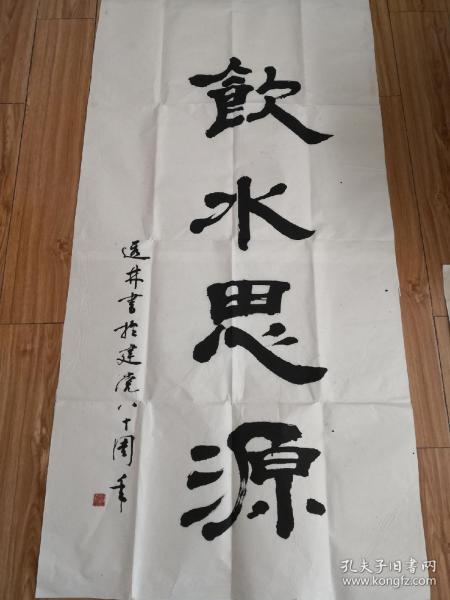 飲水思源
選林書於建党八十周年
孔夫子旧书网
www.kongfz.com